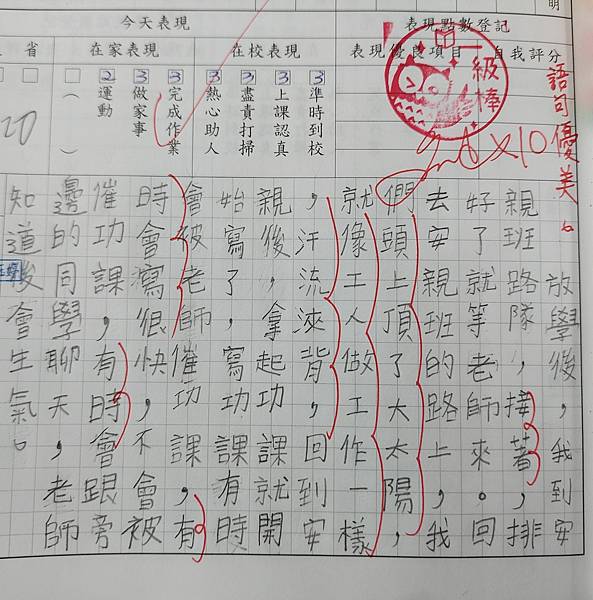 明
表現點數登記
今天表現
表現優良項目
自我評分
在校表現
在家表現
省
3 準時到校
3 上課認真
2 盡責打掃
3 熱心助人
3 完成作業
3 做家事
2 運動
( )
20
級棒
×10
語句優美。
放學後，我到安
親班路隊，接著，排
好了就等老師來。回
去安親班的路上，我
們頭上頂了大太陽，
就像工人做工作一樣
，汗流浹背，回到安
親後，拿起功課就開
始寫了，寫功課有時
會被老師催功課，有
時會寫很快，不會被
催功課，有時會跟旁
邊的同學聊天，老師
知道後會生氣。